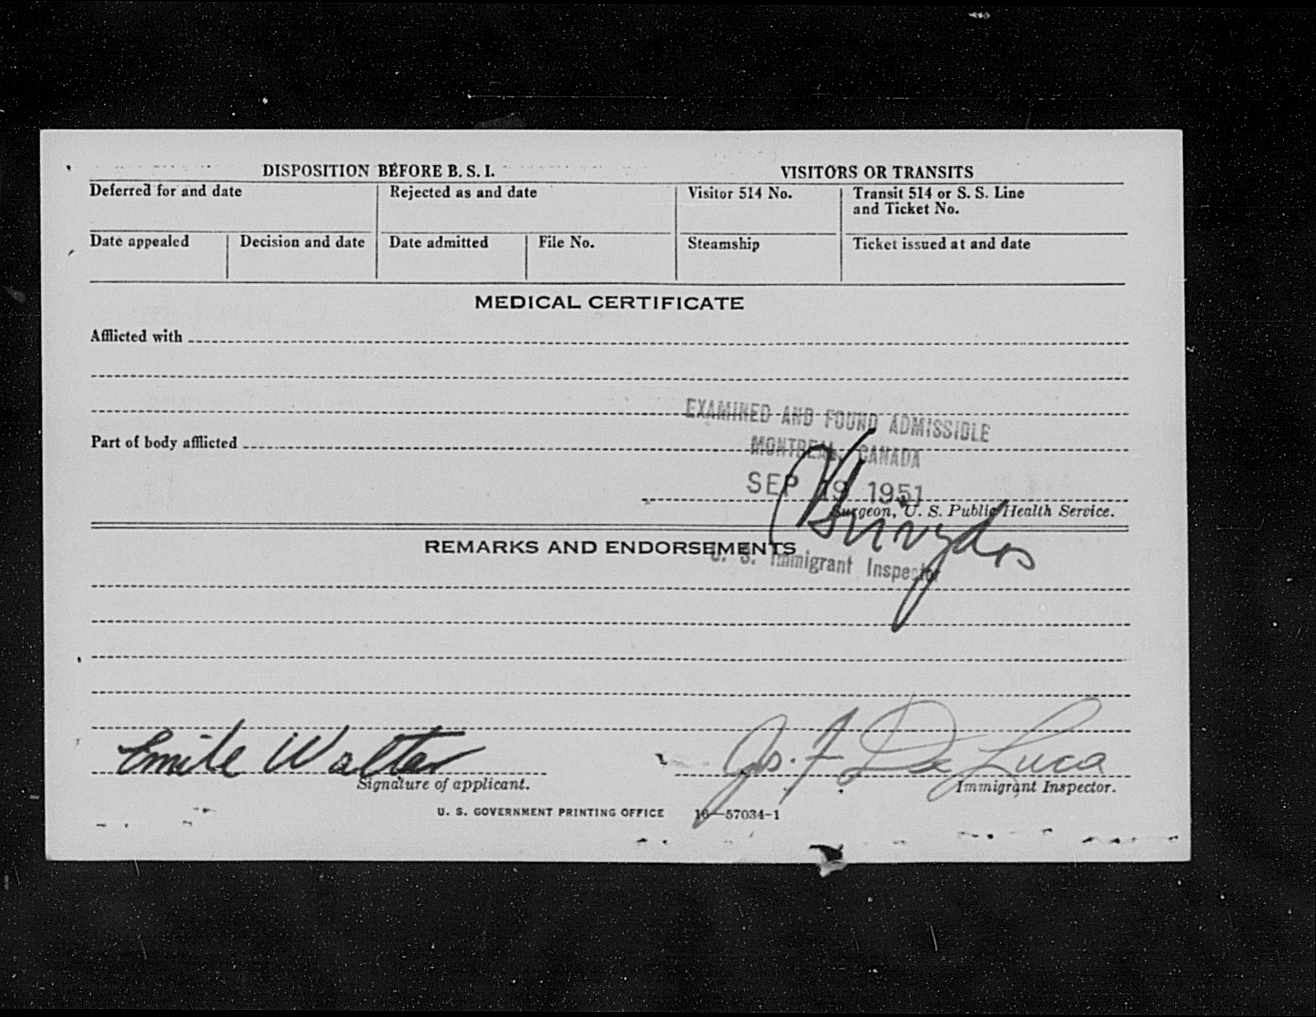 DISPOSITION BEFORE B. S. I.
VISITORS OR TRANSITS
Deferred for and date
Rejected as and date
Visitor 514 No.
Transit 514 or S. S. Line
and Ticket No.
Date appealed
Decision and date
Date admitted
File No.
Steamship
Ticket issued at and date
MEDICAL CERTIFICATE
Afflicted with
EXAMINED AND FOUND ADMISSIBLE
Part of body afflicted
MONTREAL, CANADA
SEP 19 1951
Surgeon, U. S. Public Health Service.
REMARKS AND ENDORSEMENTS
U. S. Immigrant Inspector
Emile Walter
Jos. F. De Luca
Signature of applicant.
Immigrant Inspector.
U. S. GOVERNMENT PRINTING OFFICE 16—57034-1